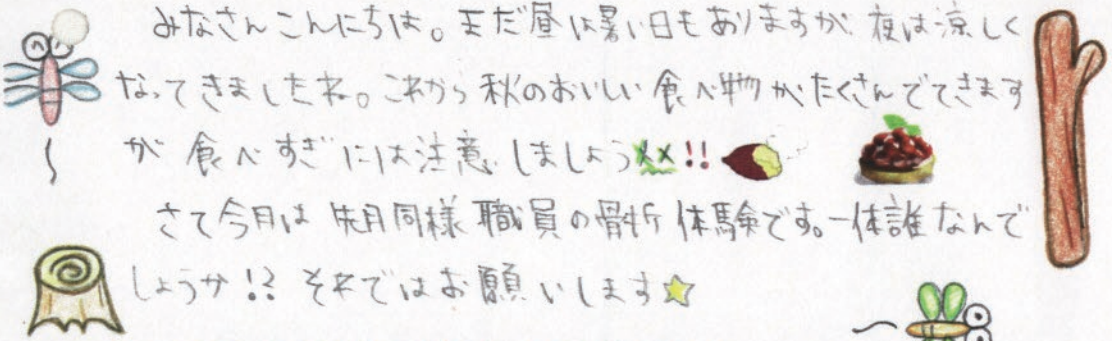 みなさんこんにちは。まだ昼は暑い日もありますが、夜は涼しく
なってきましたね。これから秋のおいしい食べ物がたくさんでてきます
が食べすぎには注意しましょう!!
さて今月は先月同様職員の骨折体験です。一体誰なんで
しょうか!? それではお願いします☆